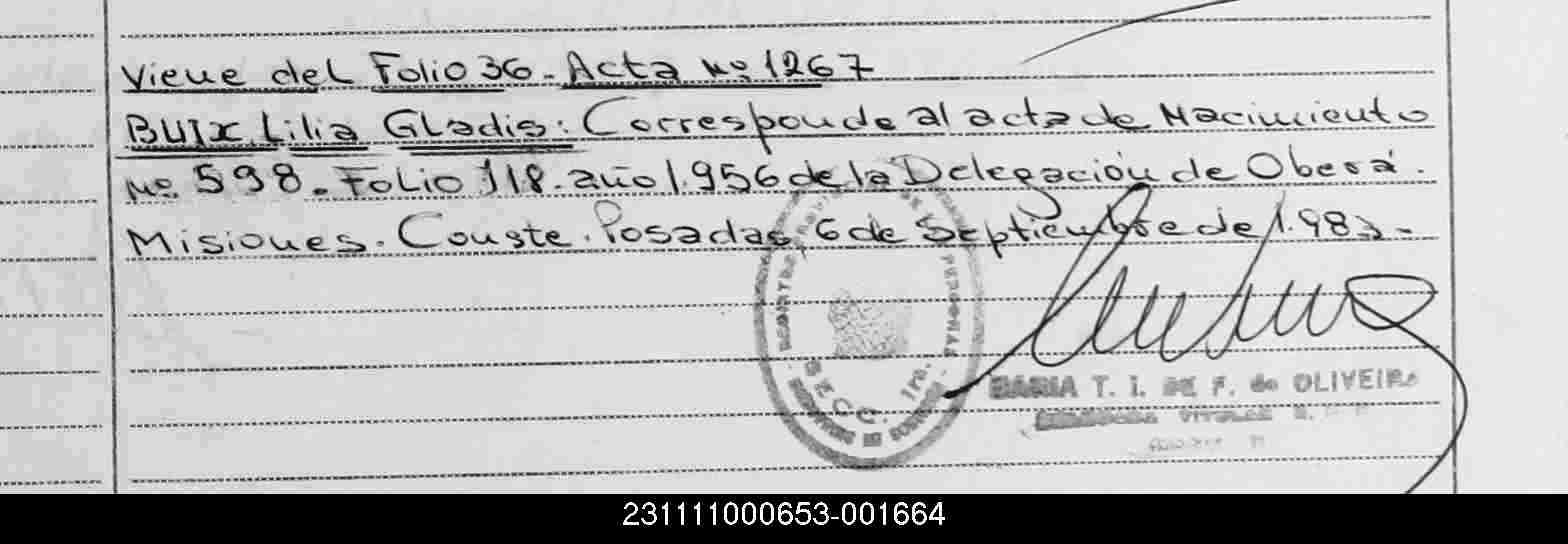 Viene del Folio 36. Acta Nº 1267
BUIX Lilia Gladis: Corresponde al acta de Nacimiento
Nº 598. Folio 118. año 1.956 de la Delegación de Oberá.
Misiones. Conste. Posadas, 6 de Septiembre de 1.983.-
SECC. 1ra.
MARIA T. I. DE F. de OLIVEIRA
231111000653-001664